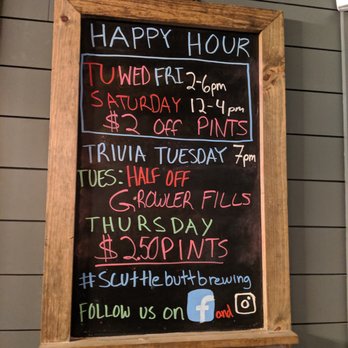 HAPPY HOUR
TU WED FRI 2-6pm
SATURDAY 12-4pm
$2 Off PINTS
TRIVIA TUESDAY 7pm
TUES: HALF OFF
GROWLER FILLS
THURSDAY
$2.50 PINTS
#scuttlebuttbrewing
FOLLOW US ON f and